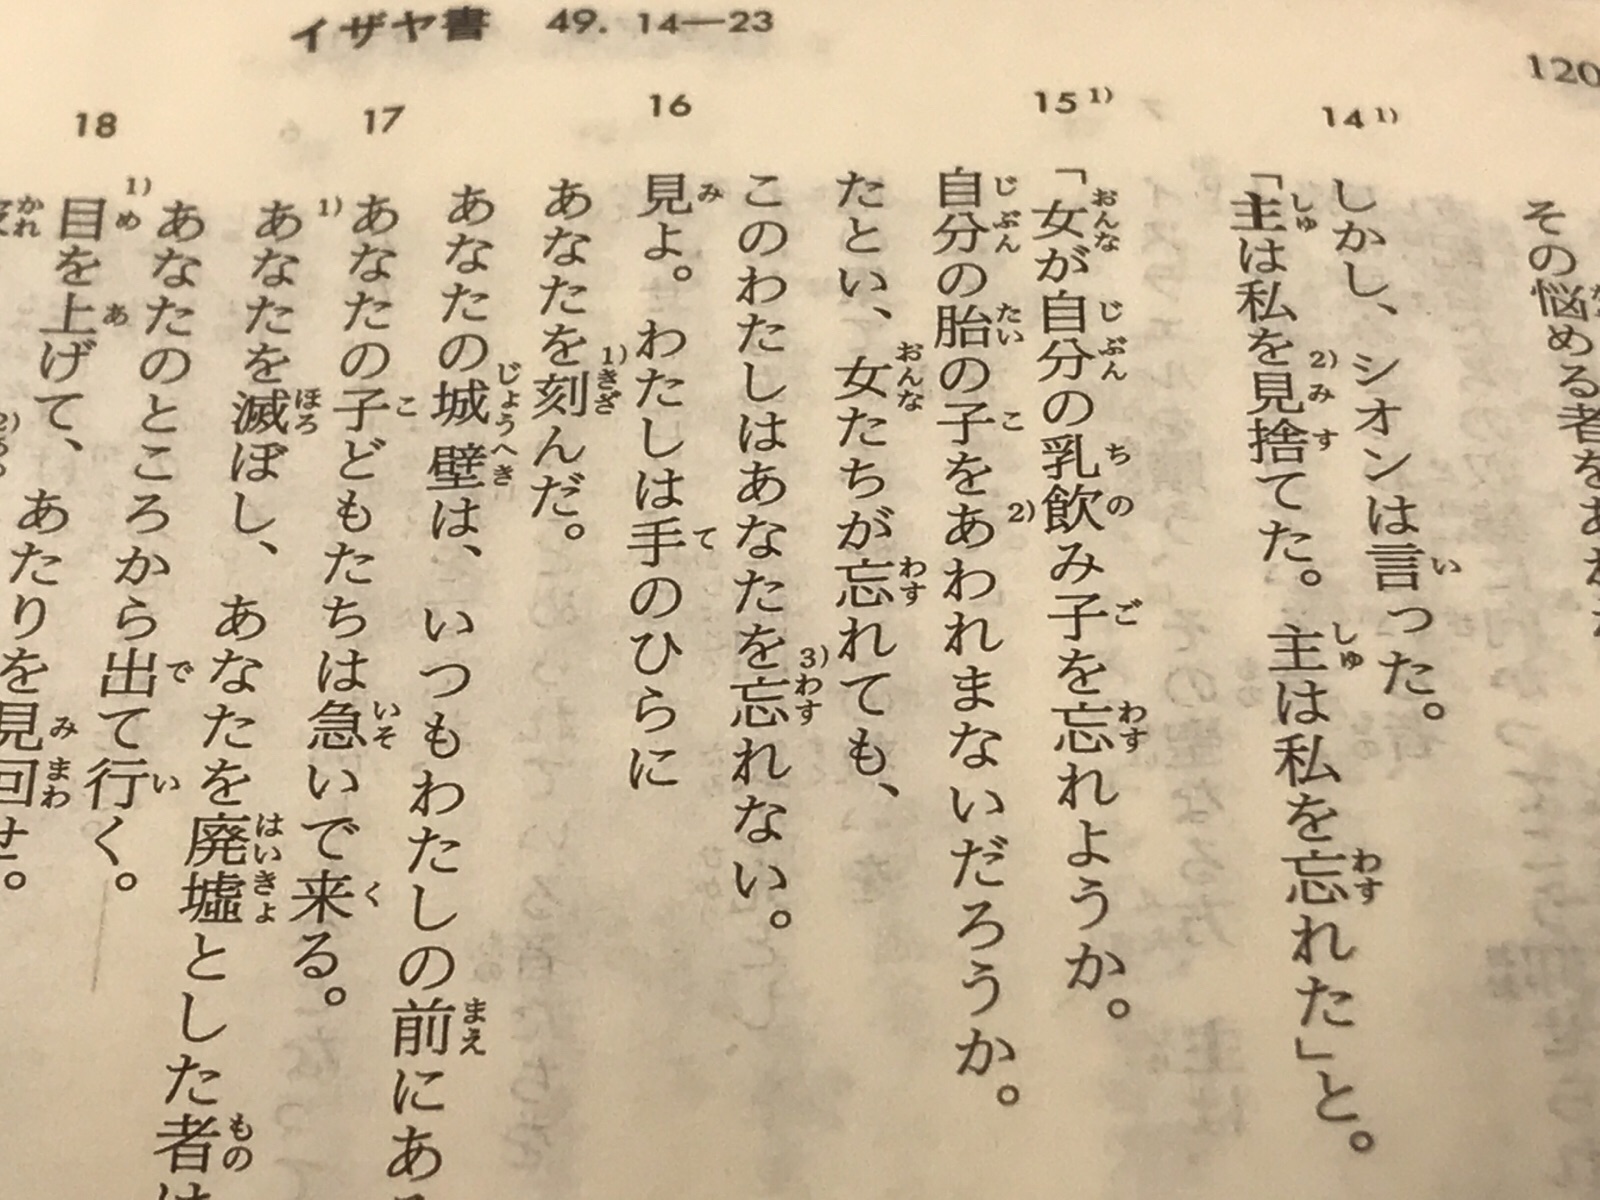 イザヤ書 49. 14—23
120
その悩める者を
14 1)
しかし、シオンは言った。
「主は私を2)見捨てた。主は私を忘れた」と。
15 1)
「女が自分の乳飲み子を忘れようか。
自分の胎の子を2)あわれまないだろうか。
たとい、女たちが忘れても、
このわたしはあなたを3)忘れない。
16
見よ。わたしは手のひらに
あなたを1)刻んだ。
あなたの城壁は、いつもわたしの前にある
17
あなたの子どもたちは急いで来る。
1)あなたを滅ぼし、あなたを廃墟とした者は
あなたのところから出て行く。
18
1)目を上げて、あたりを見回せ。